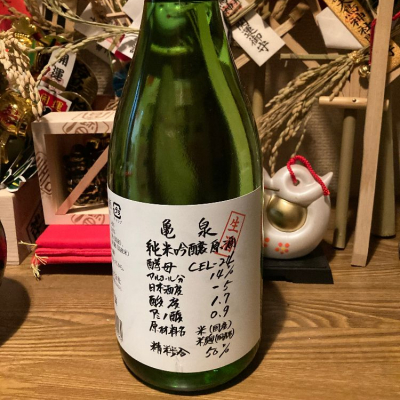 亀泉
生
純米吟醸原酒
酵母 CEL-24
アルコール分 14%
日本酒度 -5
酸度 1.7
アミノ酸 0.9
原材料名 米(国産)
米麹(国産米)
精米歩合 50%
開運